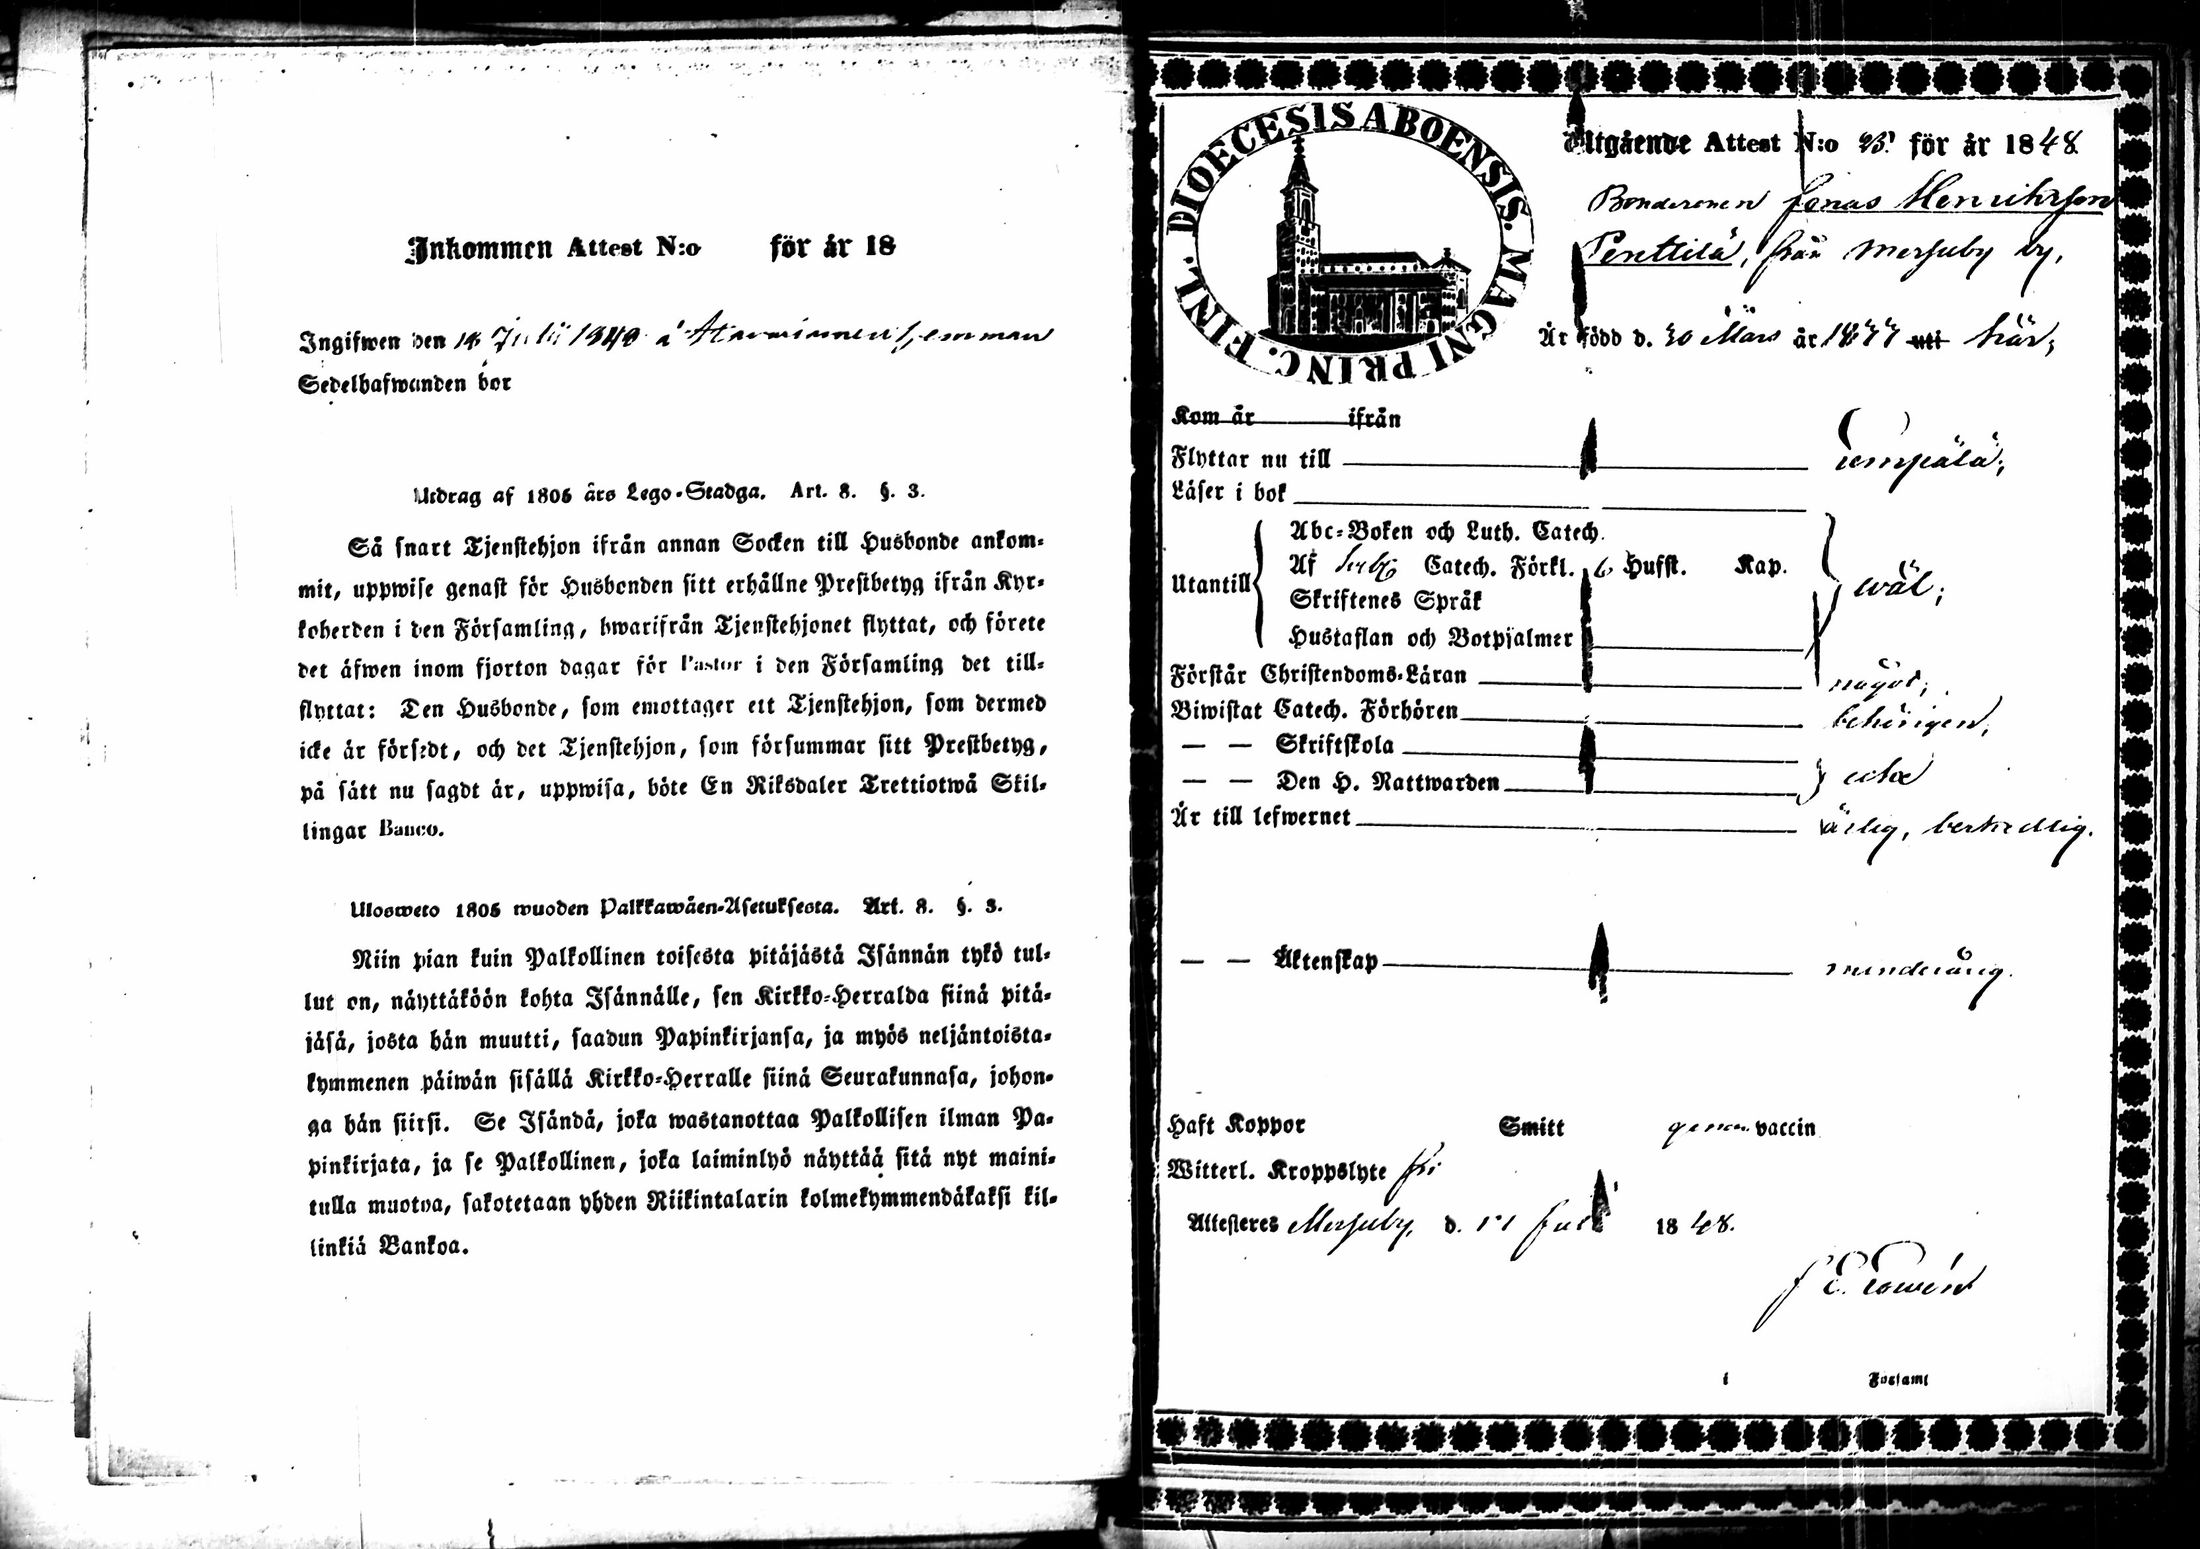 Inkommen Attest N:o för år 18
Ingifwen den 18 Juli 1848
Sedelhafwanden bor
Utdrag af 1805 års Lego-Stadga. Art. 8. §. 3.
Så snart Tjenstehjon ifrån annan Socken till Husbonde ankom-
mit, uppwise genast för Husbonden sitt erhållne Prestbetyg ifrån Kyr-
koherden i den Församling, hwarifrån Tjenstehjonet flyttat, och förete
det äfwen inom fjorton dagar för Pastor i den Församling det till-
flyttat: Den Husbonde, som emottager ett Tjenstehjon, som dermed
icke är försedt, och det Tjenstehjon, som försummar sitt Prestbetyg,
på sätt nu sagdt är, uppwisa, böte En Riksdaler Trettiotwå Skil-
lingar Banco.
Ulosweto 1805 wuoden Palkkawäen-Asetuksesta. Art. 8. §. 3.
Niin pian kuin Palkollinen toisesta pitäjästä Isännän tykö tul-
lut on, näyttäköön kohta Isännälle, sen Kirkko-Herralda siinä pitä-
jäsä, josta hän muutti, saadun Papinkirjansa, ja myös neljäntoista-
kymmenen päiwän sisällä Kirkko-Herralle siinä Seurakunnasa, johon-
ga hän siirsi. Se Isändä, joka wastanottaa Palkollisen ilman Pa-
pinkirjata, ja se Palkollinen, joka laiminlyö näyttää sitä nyt maini-
tulla muotoa, sakotetaan yhden Riikintalarin kolmekymmendäkaksi kil-
linkiä Bankoa.
DIOECESIS ABOENSIS. MAGNI PRINC. FINL.
Utgående Attest N:o för år 1848
Bondesonen Jonas Henriksson
Penttilä, från Merjuby by,
Är född d. 30 Mars år utt här;
Kom år ifrån
Flyttar nu till Lempälä;
Läser i bok
Abc-Boken och Luth. Catech.
Utantill Af Catech. Förkl. 6 Hufst. Kap. wäl;
Skriftenes Språk
Hustaflan och Botpsalmer
Förstår Christendoms-Läran något;
Biwistat Catech. Förhören behörigen,
— — Skriftskola
— — Den H. Nattwarden
Är till lefwernet ärlig, beskedlig.
— — Äktenskap minderårig.
Haft Koppor Smitt genom vaccin
Witterl. Kroppslyte fri
Attesteres Merjuby, d. 11 Juli 1848.
i Församl